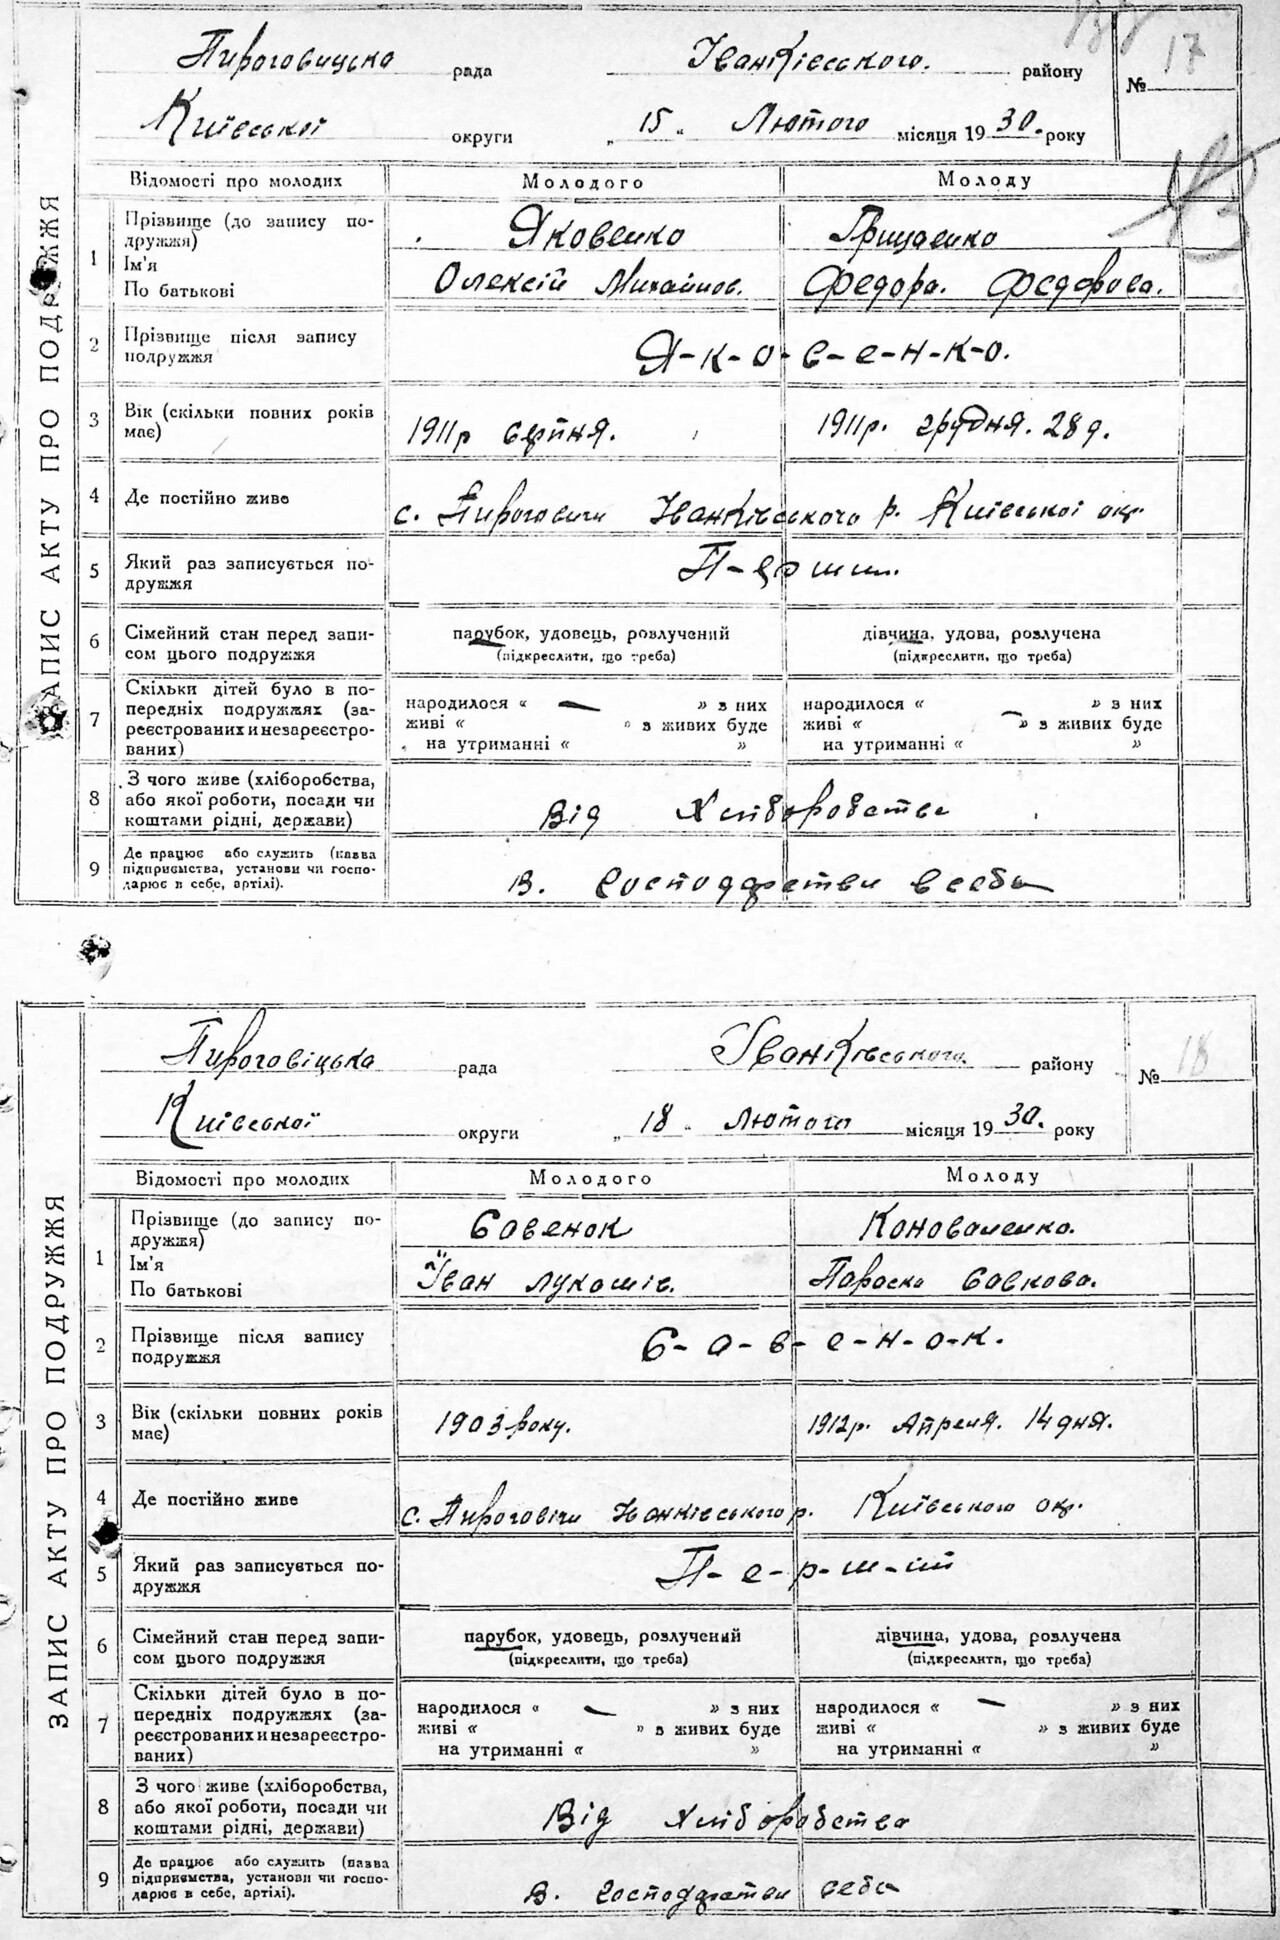 17
Пироговицька рада Іванківського. району №
Київської округи „ 15 " Лютого місяця 1930. року
ЗАПИС АКТУ ПРО ПОДРУЖЖЯ
Відомості про молодих Молодого Молоду
1 Прізвище (до запису по-
дружжя) Яковенко Грищенко
Ім'я
По батькові Олексій Михайлов. Федора. Федорова.
2 Прізвище після запису
подружжя Я-к-о-в-е-н-к-о.
3 Вік (скільки повних років
має) 1911р серпня. 1911р. грудня. 28д.
4 Де постійно живе с. Пироговичи Іванківського р. Київської окр.
5 Який раз записується по-
дружжя
6 Сімейний стан перед запи-
сом цього подружжя парубок, удовець, розлучений дівчина, удова, розлучена
(підкреслити, що треба) (підкреслити, що треба)
7 Скільки дітей було в по-
передніх подружжях (за-
реєстрованих и незареєстро-
ваних)
народилося « — » з них народилося « — » з них
живі « » з живих буде живі « » з живих буде
на утриманні « » на утриманні « »
8 З чого живе (хліборобства,
або якої роботи, посади чи
коштами рідні, держави) Від Хліборобства
9 Де працює або служить (назва
підприємства, установи чи госпо-
дарює в себе, артілі). В. господарстви в себе
18
Пироговіцька рада Іванківського. району №
Київської округи „ 18 " лютого місяця 1930. року
ЗАПИС АКТУ ПРО ПОДРУЖЖЯ
Відомості про молодих Молодого Молоду
1 Прізвище (до запису по-
дружжя) Савенок Коноваленко.
Ім'я
По батькові Іван Лукашів. Параска Савкова.
2 Прізвище після запису
подружжя С-а-в-е-н-о-к.
3 Вік (скільки повних років
має) 1903 року. 1912р. Апреля. 14 дня.
4 Де постійно живе с. Пироговичи Іванківського р. Київського окр.
5 Який раз записується по-
дружжя П-е-р-ш-ий
6 Сімейний стан перед запи-
сом цього подружжя парубок, удовець, розлучений дівчина, удова, розлучена
(підкреслити, що треба) (підкреслити, що треба)
7 Скільки дітей було в по-
передніх подружжях (за-
реєстрованих и незареєстро-
ваних)
народилося « — » з них народилося « — » з них
живі « » з живих буде живі « » з живих буде
на утриманні « » на утриманні « »
8 З чого живе (хліборобства,
або якої роботи, посади чи
коштами рідні, держави) Від Хліборобства
9 Де працює або служить (назва
підприємства, установи чи госпо-
дарює в себе, артілі). В. господарстви себе